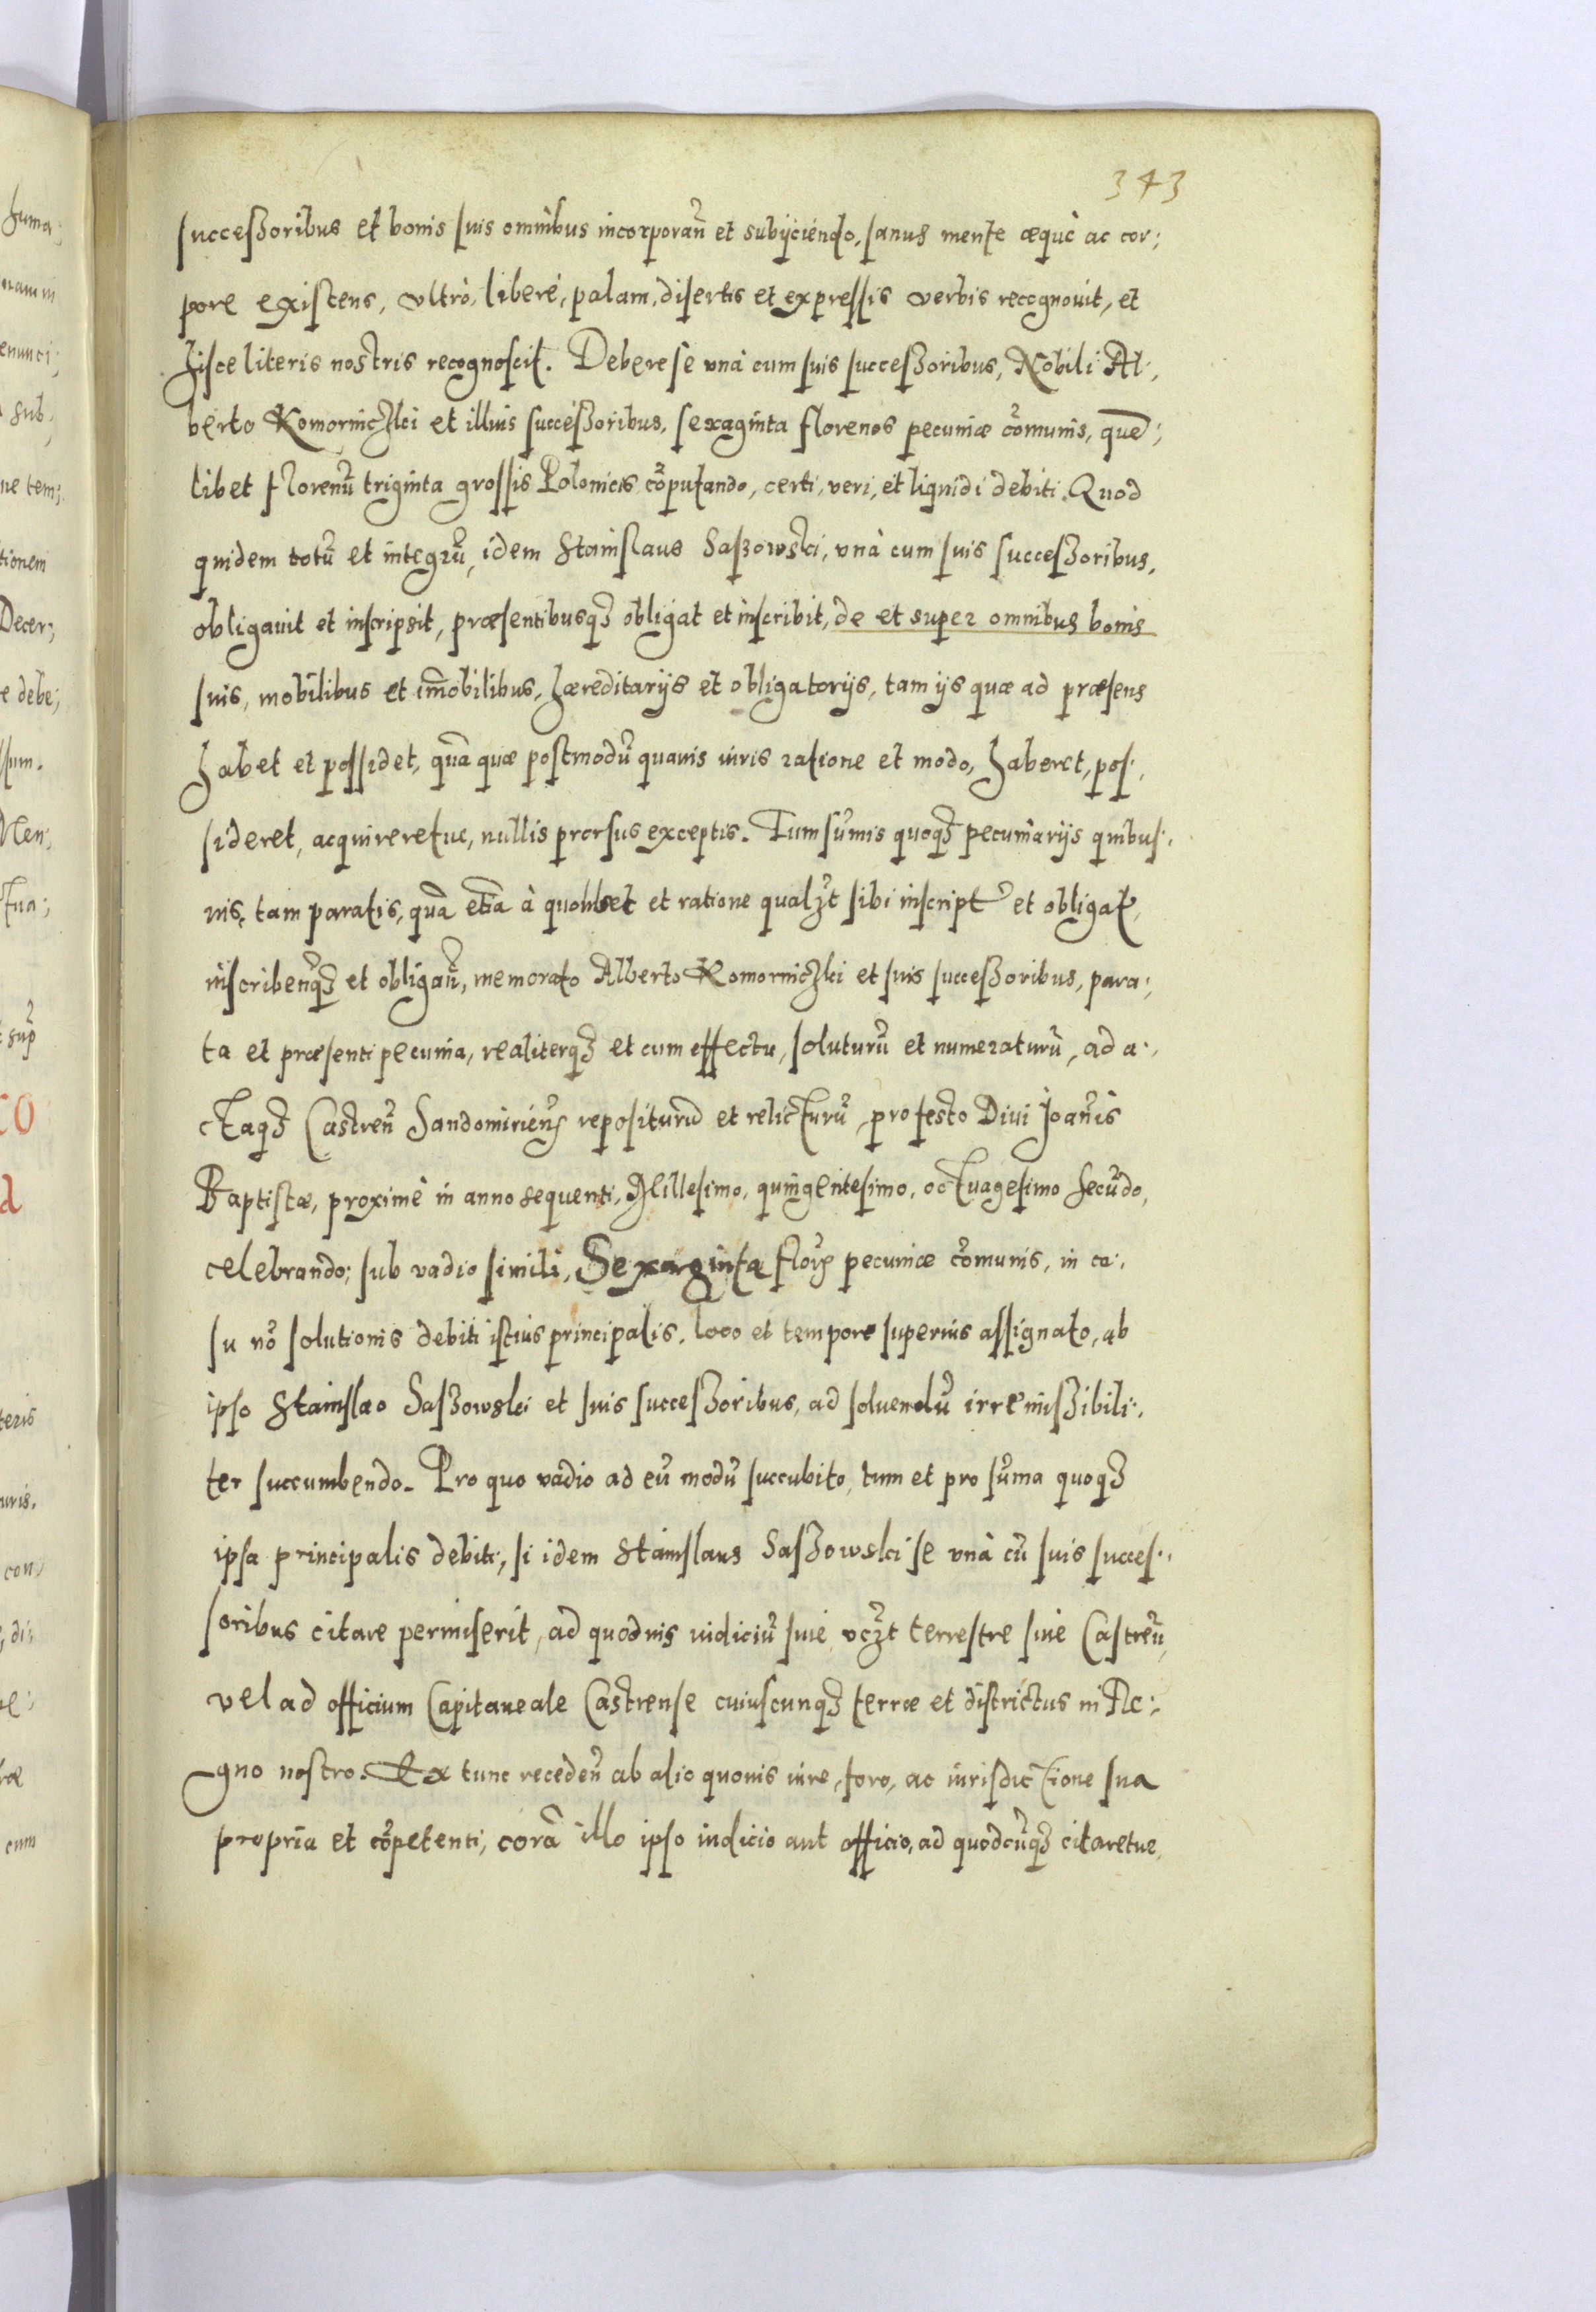 343
successoribus et bonis suis omnibus incorporañ et subijciendo, sanus mente æquè ac cor;
pore existens, vltrò, liberè, palam, disertis et expressis verbis recognouit, et
hisce literis nostris recognoscit. Debere sè vnà cum suis successoribus, Nobili Al;
berto Komorniczki et illius successoribus, sexaginta florenos pecuniæ cõmunis, quẽ;
libet florenũ triginta grossis Polonicis cõputando, certi, veri, et liquidi debiti. Quod
quidem totũ et integrũ, idem Stanislaus Saszowski, vnà cum suis successoribus,
obligauit et inscripsit, præsentibusq3 obligat et inscribit, de et super omnibus bonis
suis, mobilibus et im̃obilibus, hæreditarijs et obligatorijs, tam ijs quæ ad præsens
habet et possidet, quã quæ postmodũ quauis iuris ratione et modo, haberet, pos;
sideret, acquireretue, nullis prorsus exceptis. Tum sũmis quoq3 pecuniarijs quibus;
uis, tam paratis, quã etiã à quolibet et ratione qual3t sibi inscript et obligat,
inscribeñq3 et obligañ, memorato Alberto Komorniczki et suis successoribus, para;
ta et præsenti pecunia, realiterq3 et cum effectu, soluturũ et numeraturũ, ad a;
ctaq3 Castreñ Sandomirieñ repositurũ et relicturũ, pro festo Diui Joañis
Baptistæ, proximè in anno sequenti, Millesimo, quingentesimo, octuagesimo secũdo,
celebrando; sub vadio simili, Sexaginta flor pecuniæ cõmunis, in ca;
su nõ solutionis debiti istius principalis, loco et tempore superius assignato, ab
ipso Stanislao Saszowski et suis successoribus, ad soluendũ irremissibili;
ter succumbendo. Pro quo vadio ad eũ modũ succubito, tum et pro sũma quoq3
ipsa principalis debiti, si idem Stanislaus Saszowski se vnà cũ suis succes;
soribus citare permiserit, ad quoduis iudiciũ siue vcz3t terrestre siue Castreñ,
vel ad officium Capitaneale Castrense cuiuscunq3 terræ et districtus in Re;
gno nostro. Ex tunc recedeñ ab alio quouis iure, foro, ac iurisdictione sua
propria et cõpetenti, corã illo ipso iudicio aut officio, ad quodcũq3 citaretue,